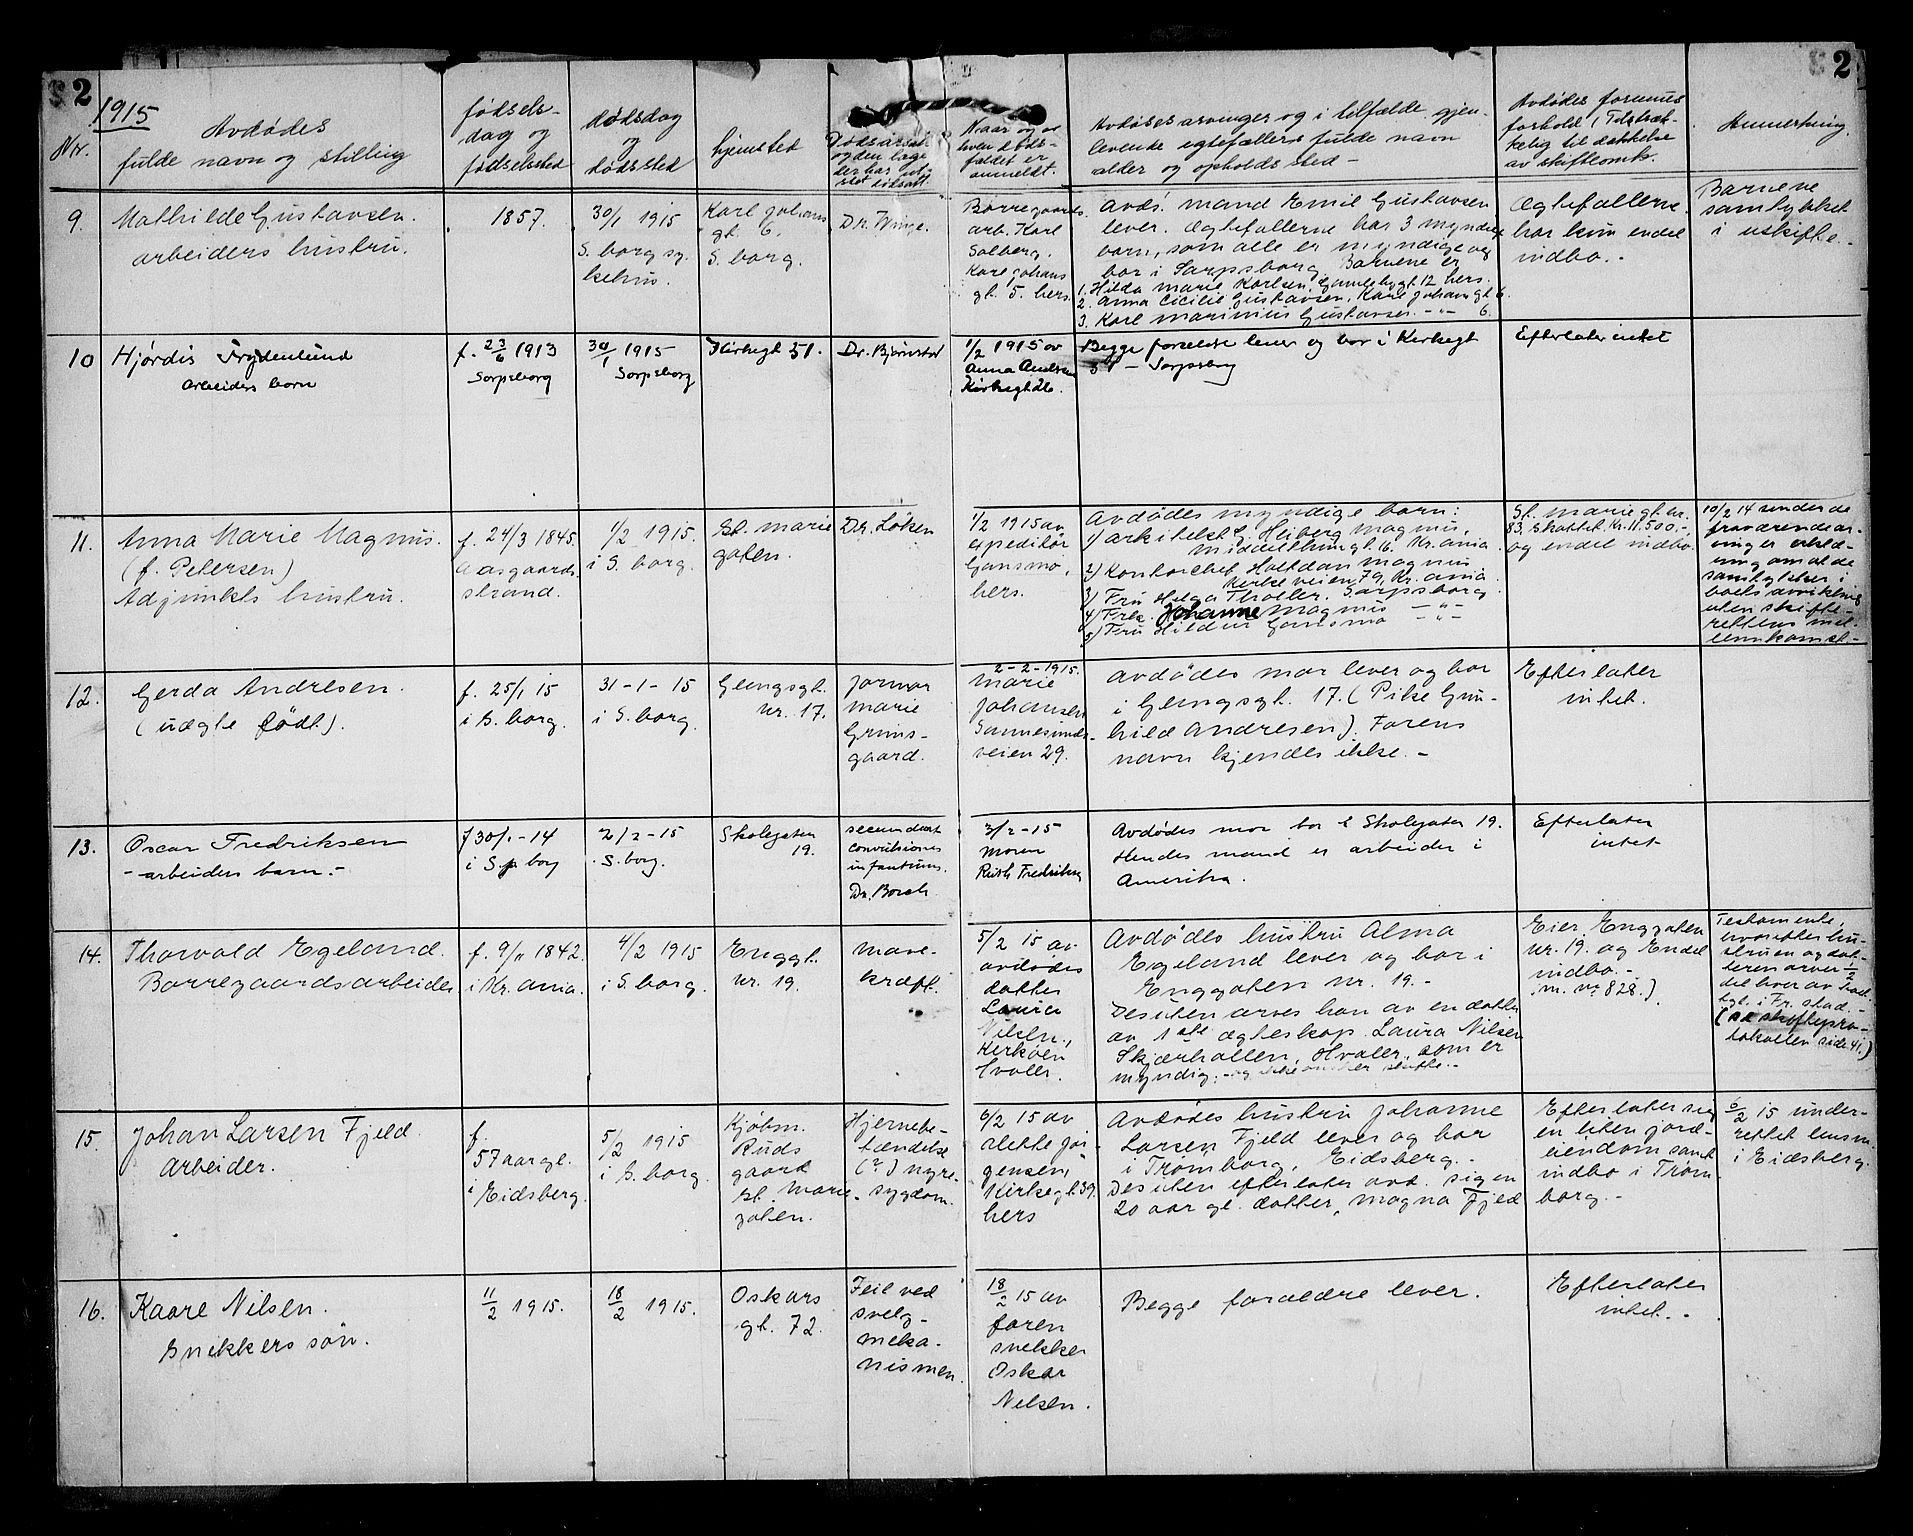 2
2
1915
Nr.
Avdødes
fulde navn og stilling
fødsels-
dag og
fødselssted
dødsdag
og
dødssted
hjemsted
Dødsårsak
og den læge
der har ut-
stet
Naar og av
hvem døds-
faldet er
anmeldt.
Avdødes arvinger og i tilfælde gjen-
levende egtefællers fulde navn
alder og opholdssted -
Avdødes formues
forhold (Tilstræk-
kelig til dækkelse
av skifteomk.
Anmerkning.
9.
Mathilde Gustavsen.
arbeiders hustru.
1857.
30/1 1915
S. borg sy-
kehus.
Karl Johans
gt. 6.
S. borg.
Dr. Winge.
Borregaards.
arb. Karl
Solberg.
Karl Johans
gt. 5. hers.
Avds. mand Emil Gustavsen
lever. Ægtefællerne har 3 myndige
barn, som alle er myndige og
bor i Sarpsborg. Barnene er
1. Hilda Marie Karlsen, Gamlebygt. 12 hers.
2. Anna Cicilie Gustavsen, Karl Johans gt. 6.
3. Karl Marinius Gustavsen. -"- 6.
Ægtefællerne
har kun endel
indbo. -
Barnene
samtykket
i uskifte. -
10
Hjørdis Frydenlund
arbeiders barn
f. 23/6 1913
Sarpsborg
30/1 1915
Sarpsborg
Kirkegt 31.
Dr. Bjørnstad
1/2 1915 av
Anna Andersen
Kirkegt 26.
Begge forældre lever og bor i Kirkegt
31 - Sarpsborg
Efterlater intet
11.
Anna Marie Magnus.
(f. Petersen)
Adjunkts hustru.
f. 24/3 1845.
Aasgaard-
strand.
1/2 1915.
i S. borg.
St. Marie
gaten.
Dr. Løken
1/2 1915 av
expeditør
Gansmo,
hers.
Avdødes myndige børn:
1) Arkitekt G. Heiberg Magnus,
Middelthunsgt. 16. Kr.ania.
2) Kontorchef Halfdan Magnus
Kirkeveien 79, Kr.ania.
3) Fru Helga Thaller. Sarpsborg
4) Frk. Johanne Magnus -"-
5) Fru Hildur Gansmo -"-
St. Marie gt. nr.
83. Skattet. Kr. 11.500.-
og endel indbo.
10/2 14 sender de
fraværende ar-
vinger erklæ-
ring om at de
samtykker i
boets avvikling
uten skifte-
rettens mel-
lemkomst. -
12.
Gerda Andresen.
(uægte født).
f. 25/1 15
i S. borg.
31-1-15
i S. borg.
Glengsgt.
nr. 17.
Jormor
Marie
Grims-
gaard.
2-2-1915.
Marie
Johansen
Sannesunds-
veien 29.
Avdødes mor lever og bor
i Glengsgt. 17. (Pike Gun-
hild Andresen). Farens
navn kjendes ikke. -
Efterlater
intet.
13.
Oscar Fredriksen
- arbeiders barn. -
f 30/1 - 14
i S.p borg
2/2 - 15
i S. borg.
Skolegaten
19.
convulsiones
infantum.
Dr. Borch.
3/2 - 15
Moren
Ruth Fredriksen
Avdødes mor bor i Skolegaten 19.
Hendes mand er arbeider i
Amerika.
Efterlater
intet
14.
Thorvald Egeland.
Borregaardsarbeider
f. 9/11 1842.
i Kr.ania.
4/2 1915
i S. borg.
Enggt.
nr. 19.
Mave-
kræft.
5/2 15 av
avdødes
datter
Laura
Nilsen,
Kirkøen
Hvaler.
Avdødes hustru Alma
Egeland lever og bor i
Enggaten nr. 19. -
Desuten arves han av en datter
av 1ste ægteskap. Laura Nilsen
Skjærhallen, Hvaler, som er
myndig, - og ikke ønsker skifte. -
Eier Enggaten
nr. 19. og Endel
indbo. -
m. nr 828.)
Testamente,
hvorefter hu-
struen og dat-
teren arver 1/2
del hver av
tgt. i Fr.stad. -
(se skiftepro-
tokollen side 41.)
15.
Johan Larsen Fjeld.
Arbeider.
f.
57 aar gl.
i Eidsberg.
5/2 1915
i S. borg.
Kjøbm.
Ruds
gaard
St. Marie
gaten.
Hjernebe-
tændelse
(?) nyre-
sygdom.
6/2 15 av
Alette Jør-
gensen,
Kirkegt. 39.
hers
Avdødes hustru Johanne
Larsen Fjeld lever og bor
i Trømborg, Eidsberg. -
Desuten efterlater avd. sig en
20 aar gl. datter, Magna Fjeld
Efterlater sig
en liten jord-
eiendom samt
indbo i Trøm-
borg. -
6/2 15 under-
rettet lensm.
i Eidsberg.
16.
Kaare Nilsen.
Snekkers søn.
11/2 1915.
18/2 1915.
Oskars
gt. 72.
Feil ved
svelg-
meka-
nismen.
18/2 15 av
faren
snekker
Oskar
Nilsen.
Begge forældre lever.
Efterlater
intet. -